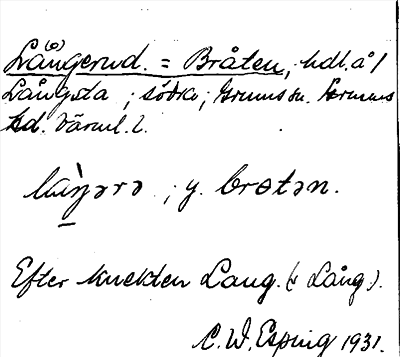 Lång(e)rud. = Bråten, hdl. å /
Långsta ; södra ; Grums sn. Grums
hd. Värml. l.
laŋ̀ərə ; y. brɵtən.
Efter knekten Lang. (: Lång).
C. W. Esping 1931.